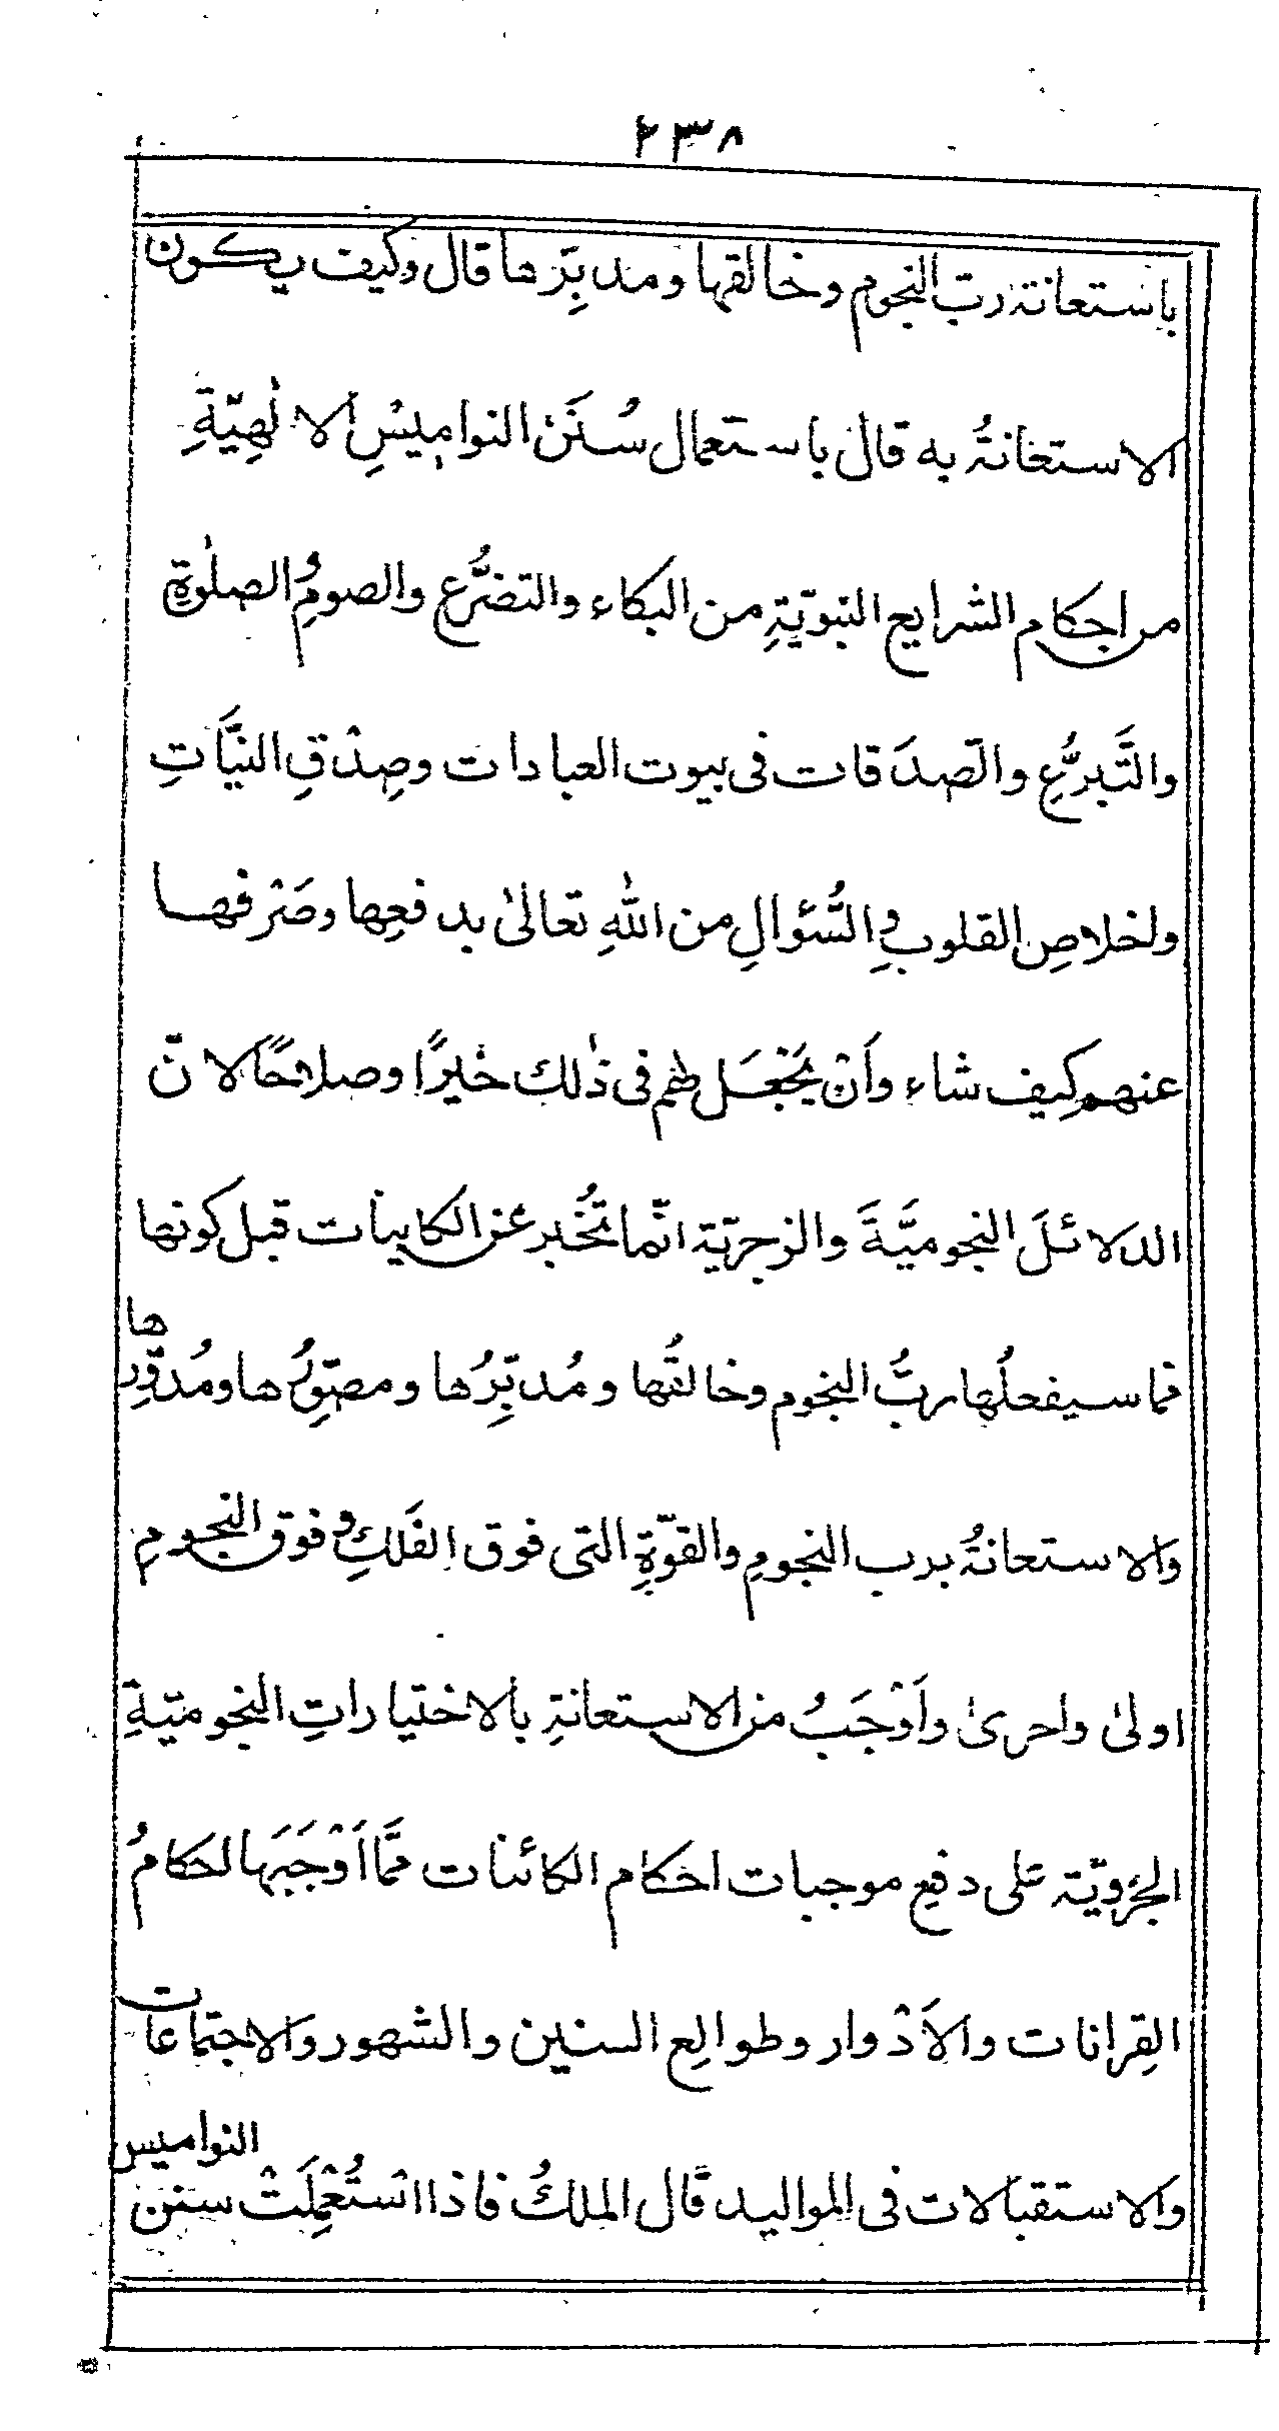 ٢٣٨
باستعانة ربّ النجوم وخالقها ومدبِّرها قال وكيف يكون
الاستعانةُ به قال باستعمال سُنَنْ النواميْسِ الالٰهِيّةِ
من احكام الشرايع النبويّةِ من البكاء والتضرُّع والصومِ وُالصلٰوةِ
والتَّبرُّعِ والصّدَقات فى بيوت العبادات وصِدْقِ النيَّاتِ
واخلاصِ القلوبِ والسُّئوالِ من اللّٰهِ تعالىٰ بدفعِها وصَرْفها
عنهم كيف شاء واَنْ يَجْعَل لهم فى ذٰلك خيرًا وصلاحًا لانّ
الدلائلَ النجوميَّةَ والزجريّة انّما تُخبر عن الكاينات قبل كونها
فما سيفعلُها ربُّ النجوم وخالقُها ومُدبِّرُها ومصوِّرُها ومُدوِّرها
والاستعانةُ برب النجومِ والقوّةِ التى فوق الفَلكِ وفوق النجومِ
اولىٰ واحرىٰ واَوْجَبُ من الاستعانةِ بالاختياراتِ النجوميّةِ
الجزويّة على دفعِ موجبات احكام الكائنات ممَّا اَوْجَبَها احكامُ
القِرانات والاَدْوار وطوالِع السنين والشهور والاجتماعات
والاستقبالات فى المواليد قال الملكُ فاذا اسْتُعْمِلَتْ سنن النواميس